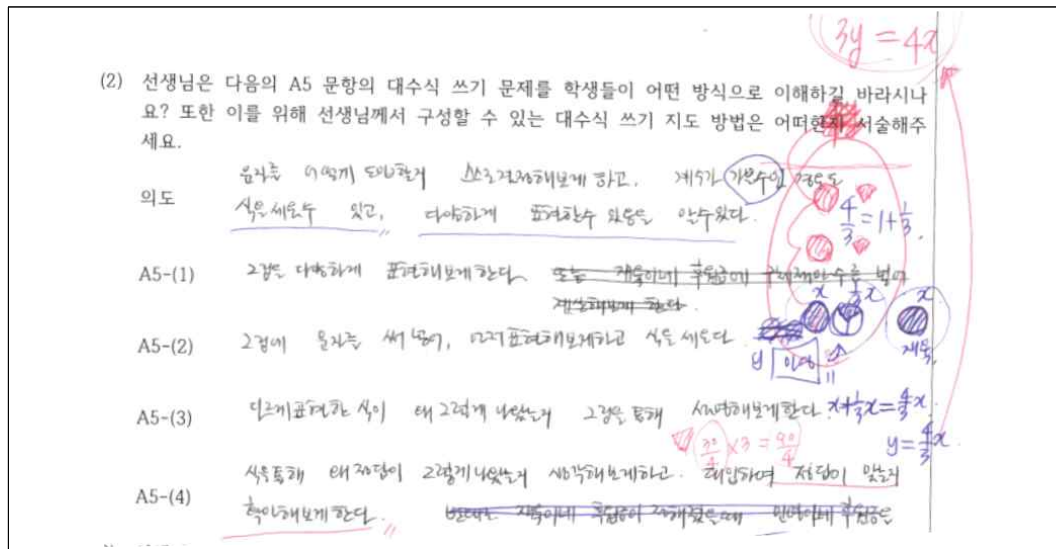 3y = 4x
(2) 선생님은 다음의 A5 문항의 대수식 쓰기 문제를 학생들이 어떤 방식으로 이해하길 바라시나
요? 또한 이를 위해 선생님께서 구성할 수 있는 대수식 쓰기 지도 방법은 어떠한지 서술해주
세요.
의도
문자를 어떻게 도입할지 스스로 결정해보게 하고. 계수가 가분수인 경우도
식을 세울수 있고, 다양하게 표현할수 있음을 알수있다.
4/3 = 1 + 1/3
A5-(1) 그림을 다양하게 표현해보게 한다.
x 1/3x x
A5-(2) 그림에 문자를 써 넣어, 먼저 표현해보게하고 식을 세운다.
y 민영 재욱
A5-(3) 다르게 표현한 식이 왜 그렇게 나왔는지 그림을 통해 설명해보게한다.
x + 1/3x = 4/3x
y = 4/3x
30/4 × 3 = 90/4
A5-(4) 식을 통해 왜 정답이 그렇게 나왔는지 생각해보게하고. 대입하여 정답이 맞는지
확인해보게 한다.